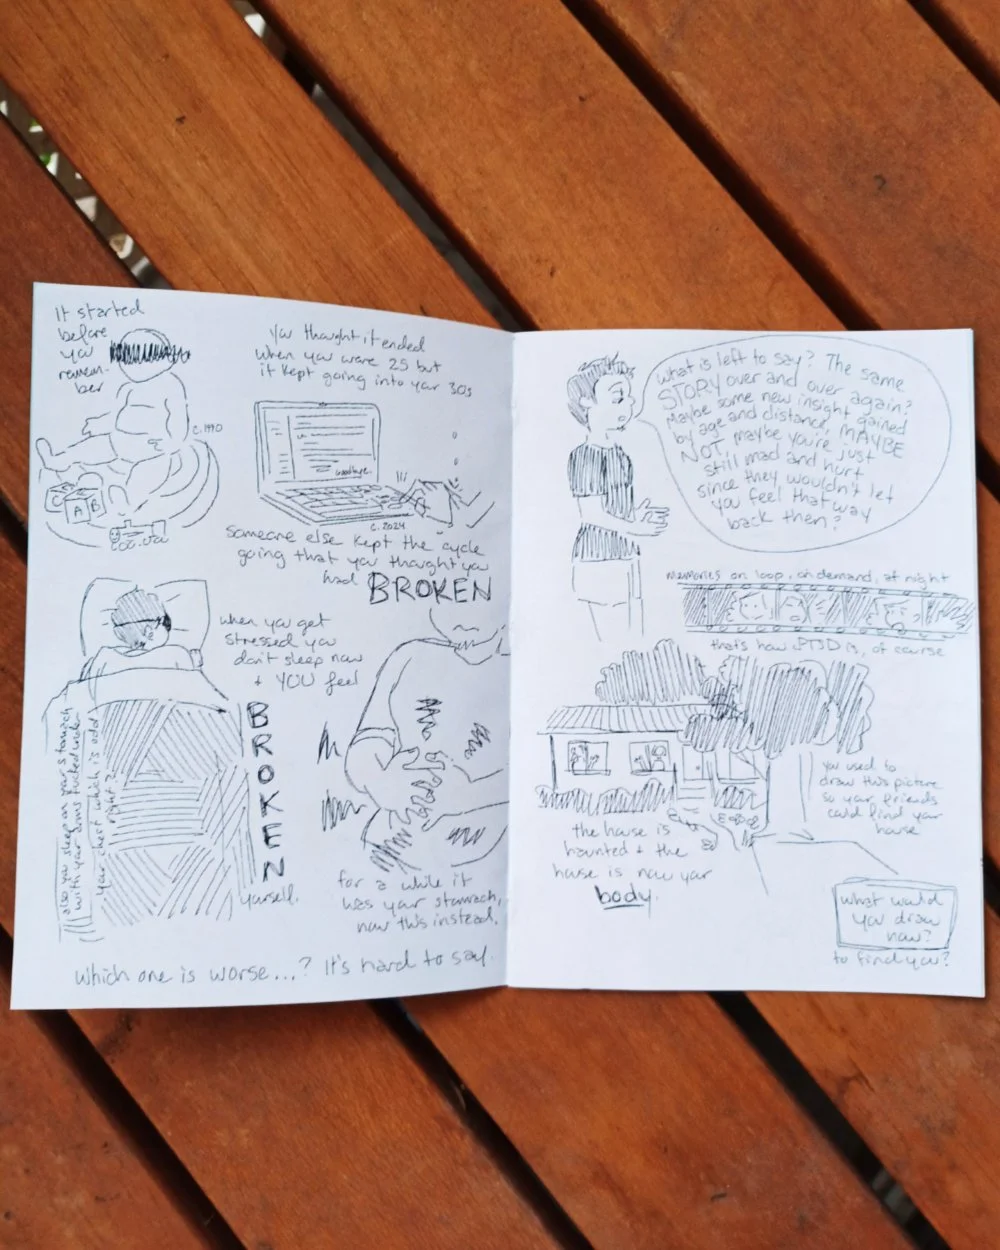 It started
before
you
remem-
ber
c. 1990
C
A
B
You thought it ended
when you were 25 but
it kept going into your 30s
goodbye.
c. 2024
someone else kept the cycle
going that you thought you
had BROKEN
when you get
stressed you
don't sleep now
+ YOU feel
BROKEN
yourself.
also you sleep on your stomach
with your arms tucked under
your chest which is odd
right?
for a while it
was your stomach,
now this instead.
which one is worse...? It's hard to say.
what is left to say? The same
STORY over and over again?
Maybe some new insight gained
by age and distance, MAYBE
NOT, maybe you're just
still mad and hurt
since they wouldn't let
you feel that way
back then?
memories on loop, on demand, at night
that's how PTSD is, of course
you used to
draw this picture
so your friends
could find your
house
the house is
haunted + the
house is now your
body.
what would
you draw
now?
to find you?